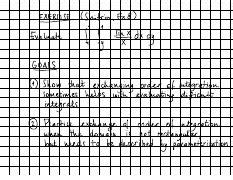 EXERCISE (Santos, Ex 8)
Evaluate ∫ ∫ sin x / x dx dy
GOALS
① Show that exchanging order of integration
sometimes helps with evaluating difficult
integrals
② Practice exchange of order of integration
when the domain is not rectangular,
but needs to be described by parametrization